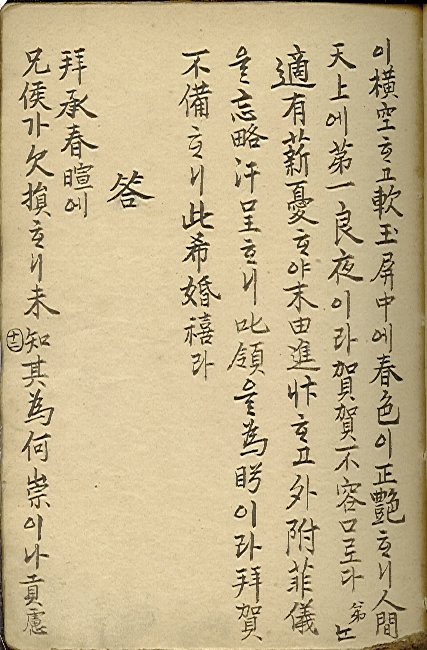 이橫空ᄒᆞ고軟玉屛中에春色이正艶ᄒᆞ니人間
天上에第一良夜이라賀賀不容口로라 弟ᄂᆞᆫ
適有薪憂ᄒᆞ야末由進忭ᄒᆞ고外附菲儀
을忘略汗呈ᄒᆞ니叱領을為盻이라拜賀
不備ᄒᆞ니此希婚禧라
答
拜承春暄에
兄候가欠損ᄒᆞ니未知其為何祟이나貢慮
十三